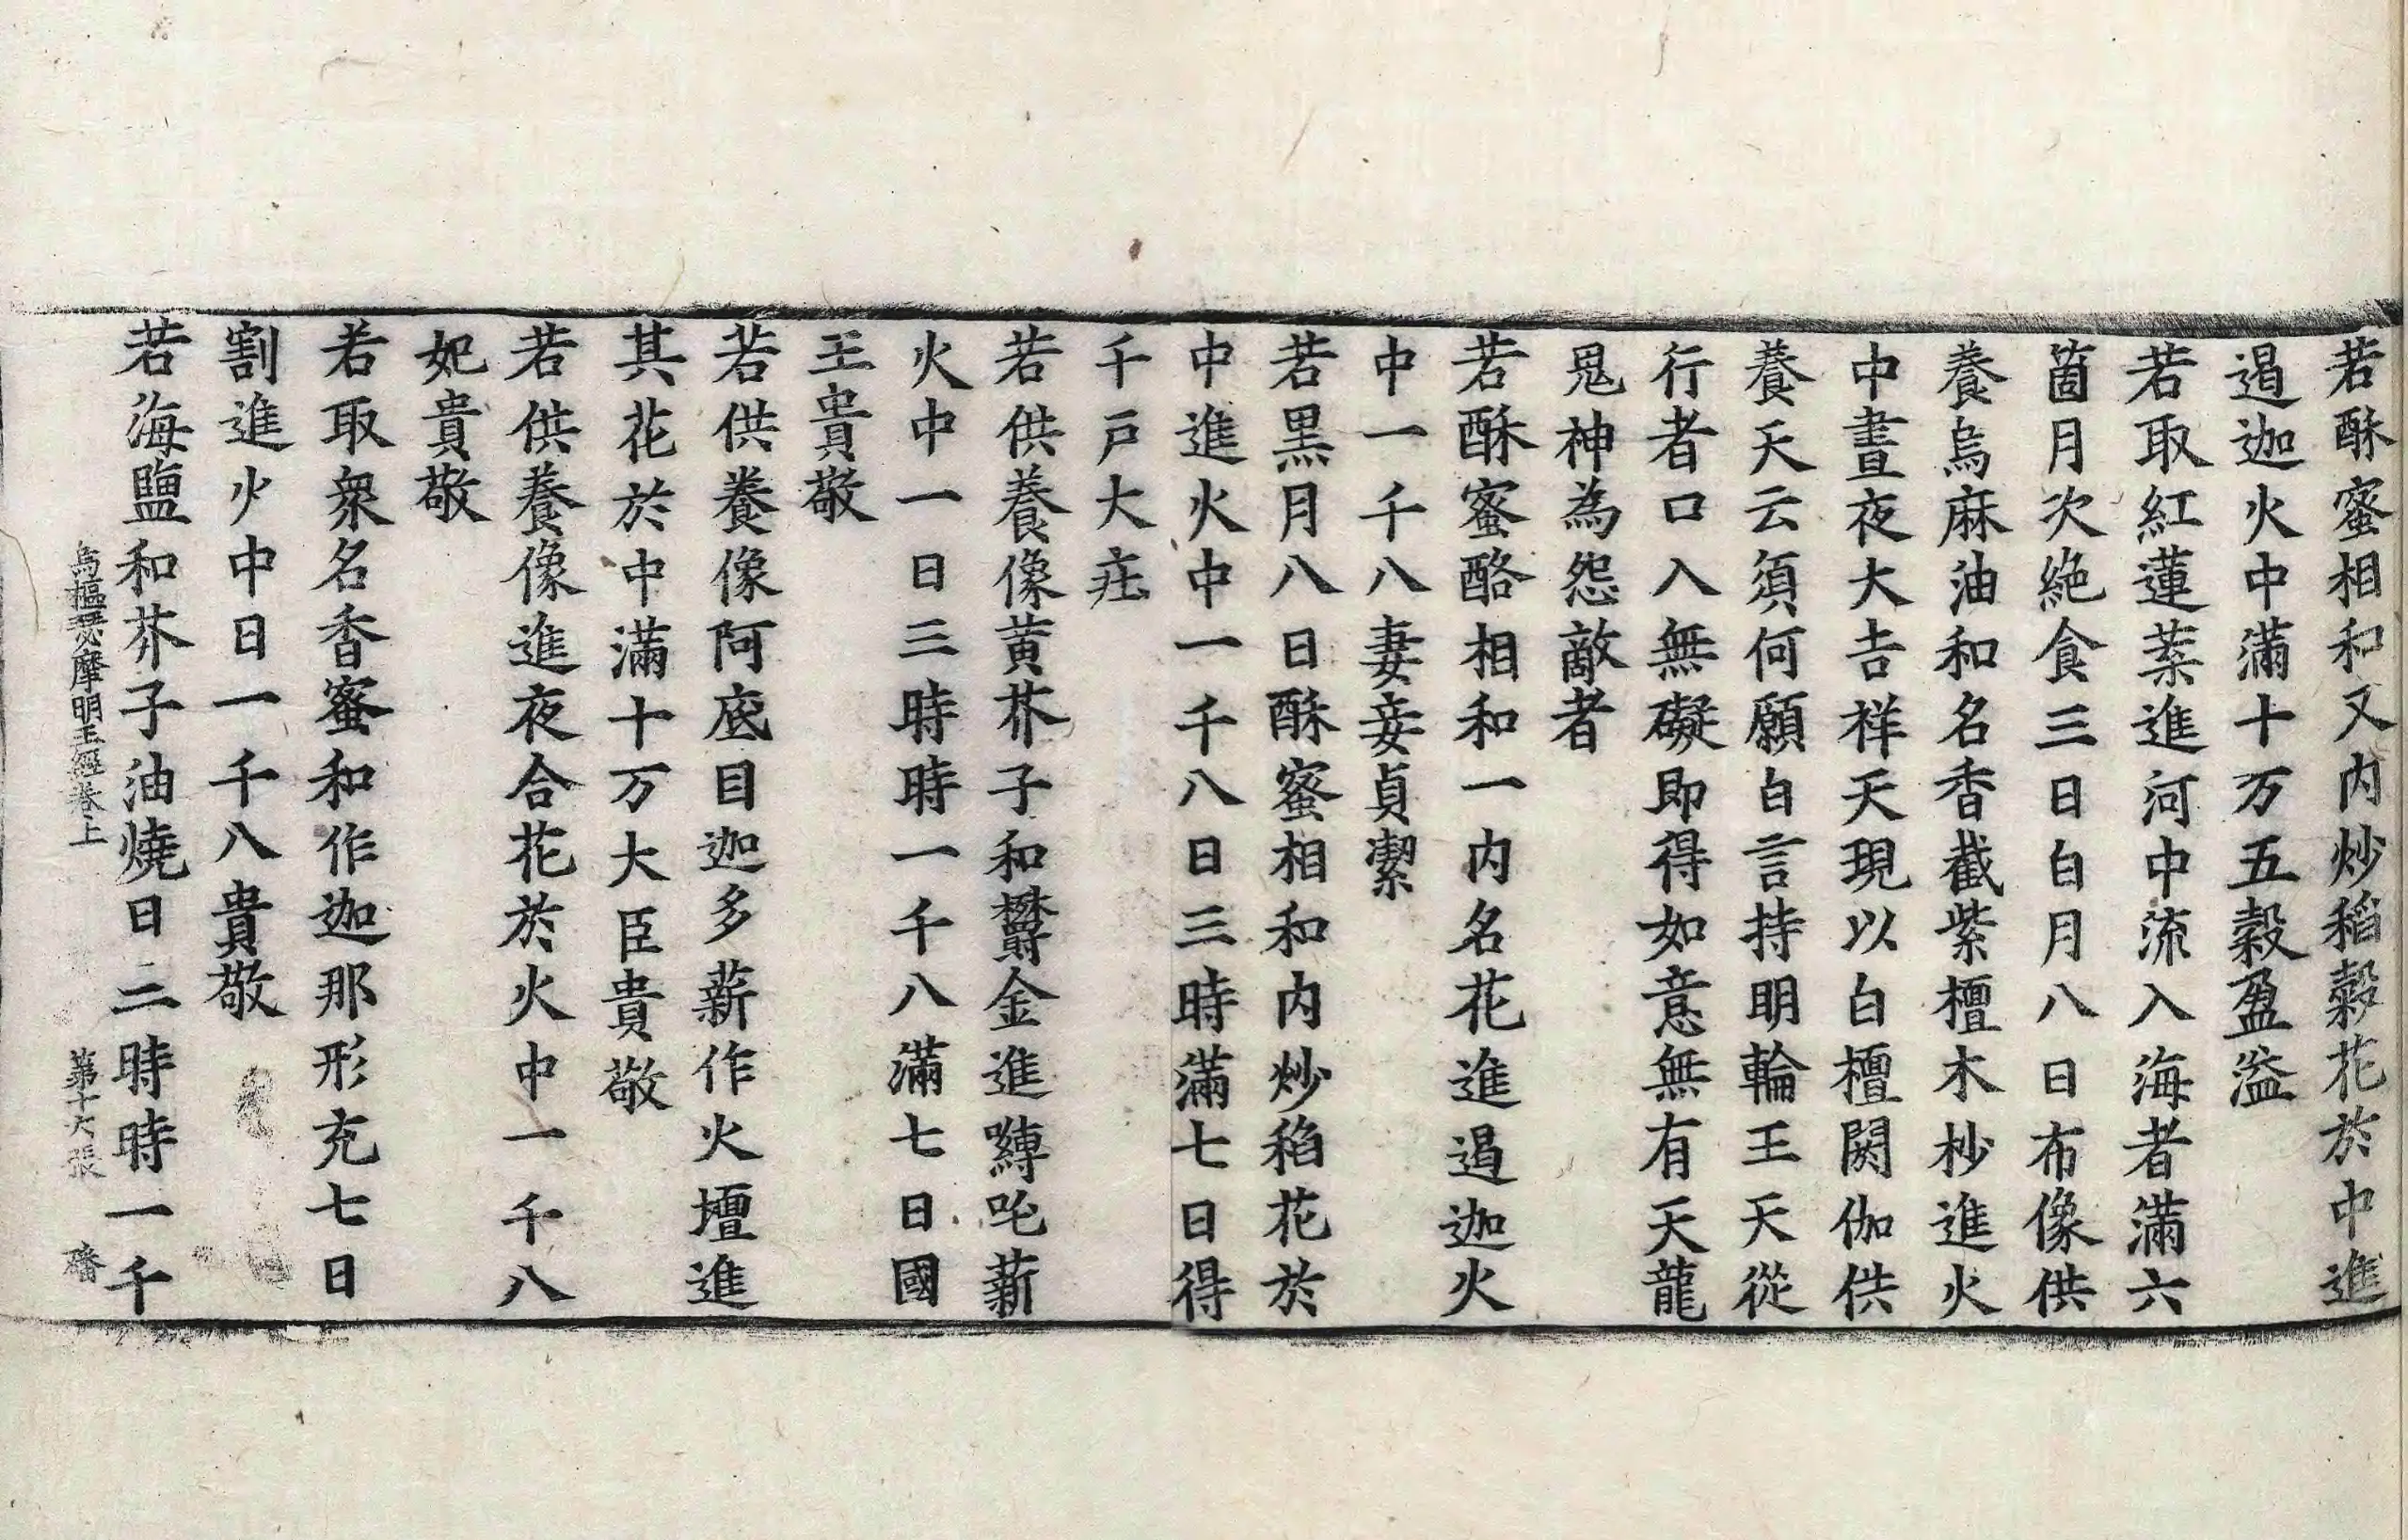 若酥蜜相和又内炒稻糓花於中進
遏迦火中滿十万五糓盈溢
若取紅蓮葉進河中流入海者滿六
箇月次絶食三日白月八日布像供
養烏麻油和名香截紫檀木杪進火
中晝夜大吉祥天現以白檀閼伽供
養天云須何願白言持明輪王天從
行者口入無礙即得如意無有天龍
鬼神為怨敵者
若酥蜜酪相和一内名花進遏迦火
中一千八妻妾貞潔
若黒月八日酥蜜相和内炒稻花於
中進火中一千八日三時滿七日得
千戸大庄
若供養像黄芥子和欝金進嚩吒薪
火中一日三時時一千八滿七日國
王貴敬
若供養像阿底目迦多薪作火壇進
其花於中滿十万大臣貴敬
若供養像進夜合花於火中一千八
妃貴敬
若取衆名香蜜和作迦那形充七日
割進火中日一千八貴敬
若海鹽和芥子油燒日三時時一千
烏樞瑟摩明王經卷上 第十六張